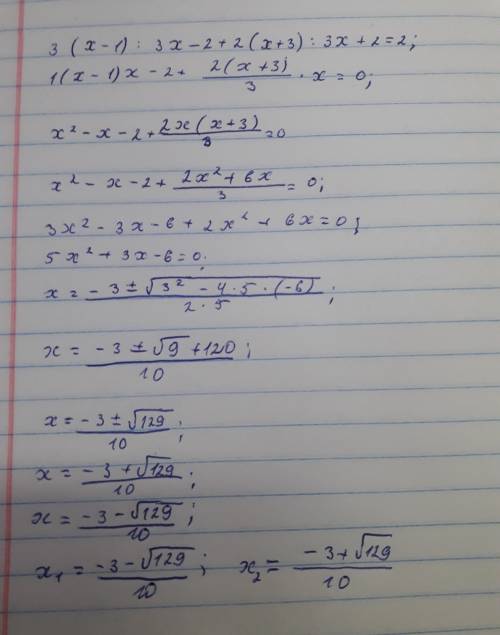 3(x-1) : 3x-2+2(x+3) : 3x+2=2;
1(x-1)x-2+ 2(x+3)/3 · x = 0;
x²-x-2+ 2x(x+3)/3 =0
x²-x-2+ 2x²+6x/3 = 0;
3x²-3x-6+2x²+6x=0;
5x²+3x-6=0;
x= -3±√3²-4·5·(-6)/2·5;
x= -3±√9+120/10;
x= -3±√129/10;
x= -3+√129/10;
x= -3-√129/10;
x₁= -3-√129/10; x₂= -3+√129/10